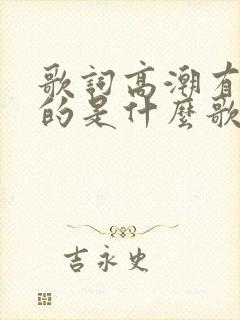 歌詞高潮有
的是什麼歌
吉永史